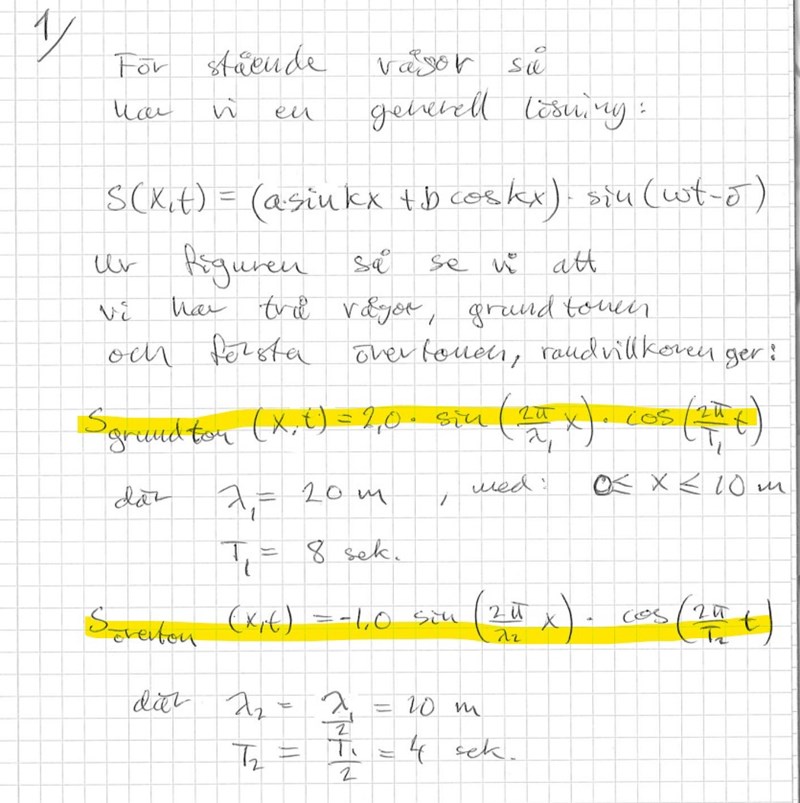 1/
För stående vågor så
har vi en generell lösning:
S(x,t) = (a·sin kx + b cos kx) · sin(ωt-δ)
Ur figuren så se vi att
vi har två vågor, grundtonen
och första övertonen, randvillkoren ger:
S_grundton (x,t) = 2,0 · sin(2π/λ₁ x) · cos(2π/T₁ t)
där λ₁ = 20 m , med: 0 ≤ x ≤ 10 m
T₁ = 8 sek.
S_överton (x,t) = -1,0 sin(2π/λ₂ x) · cos(2π/T₂ t)
där λ₂ = λ₁/2 = 10 m
T₂ = T₁/2 = 4 sek.